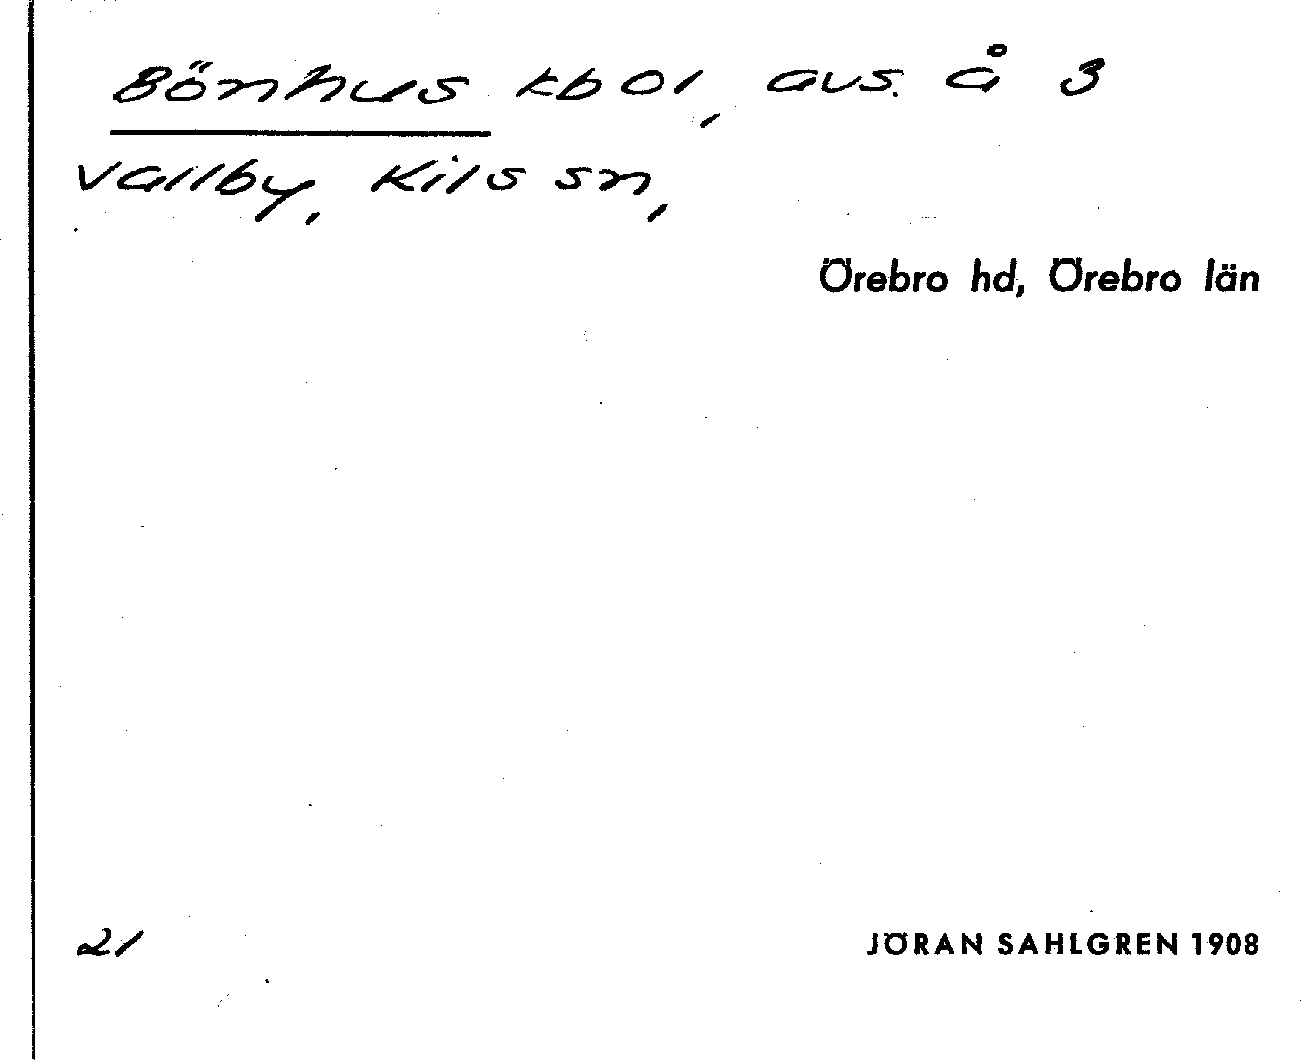 Bönhus kbol, avs. å 3
Vallby, Kils sn,
Örebro hd, Örebro län
21
JÖRAN SAHLGREN 1908